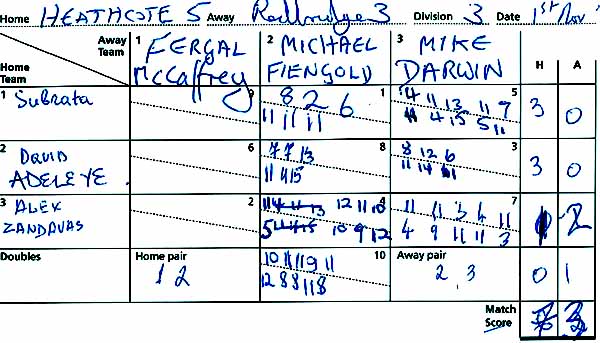 Home HEATHCOTE 5 Away Redbridge 3 Division 3 Date 1st Nov
Away Team 1 FERGAL McCaffrey 2 MICHAEL FIENGOLD 3 MIKE DARWIN H A
Home Team
1 Subrata 9 8 2 6 1 4 11 13 11 7 5 3 0
11 11 11 11 4 15 5 11
2 DAVID ADELEYE. 6 7 7 13 8 8 12 6 3 3 0
11 11 15 11 14 11
3 ALEX ZANDAVAS 2 12 11 10 4 11 11 3 4 11 7 2
5 10 9 12 4 9 11 11 3
Doubles Home pair 1 2 10 11 11 9 11 10 Away pair 2, 3 0 1
12 8 8 11 8
Match Score 3